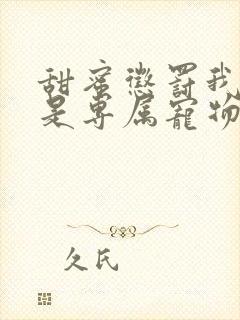 甜蜜惩罚我
是专属宠物
久氏